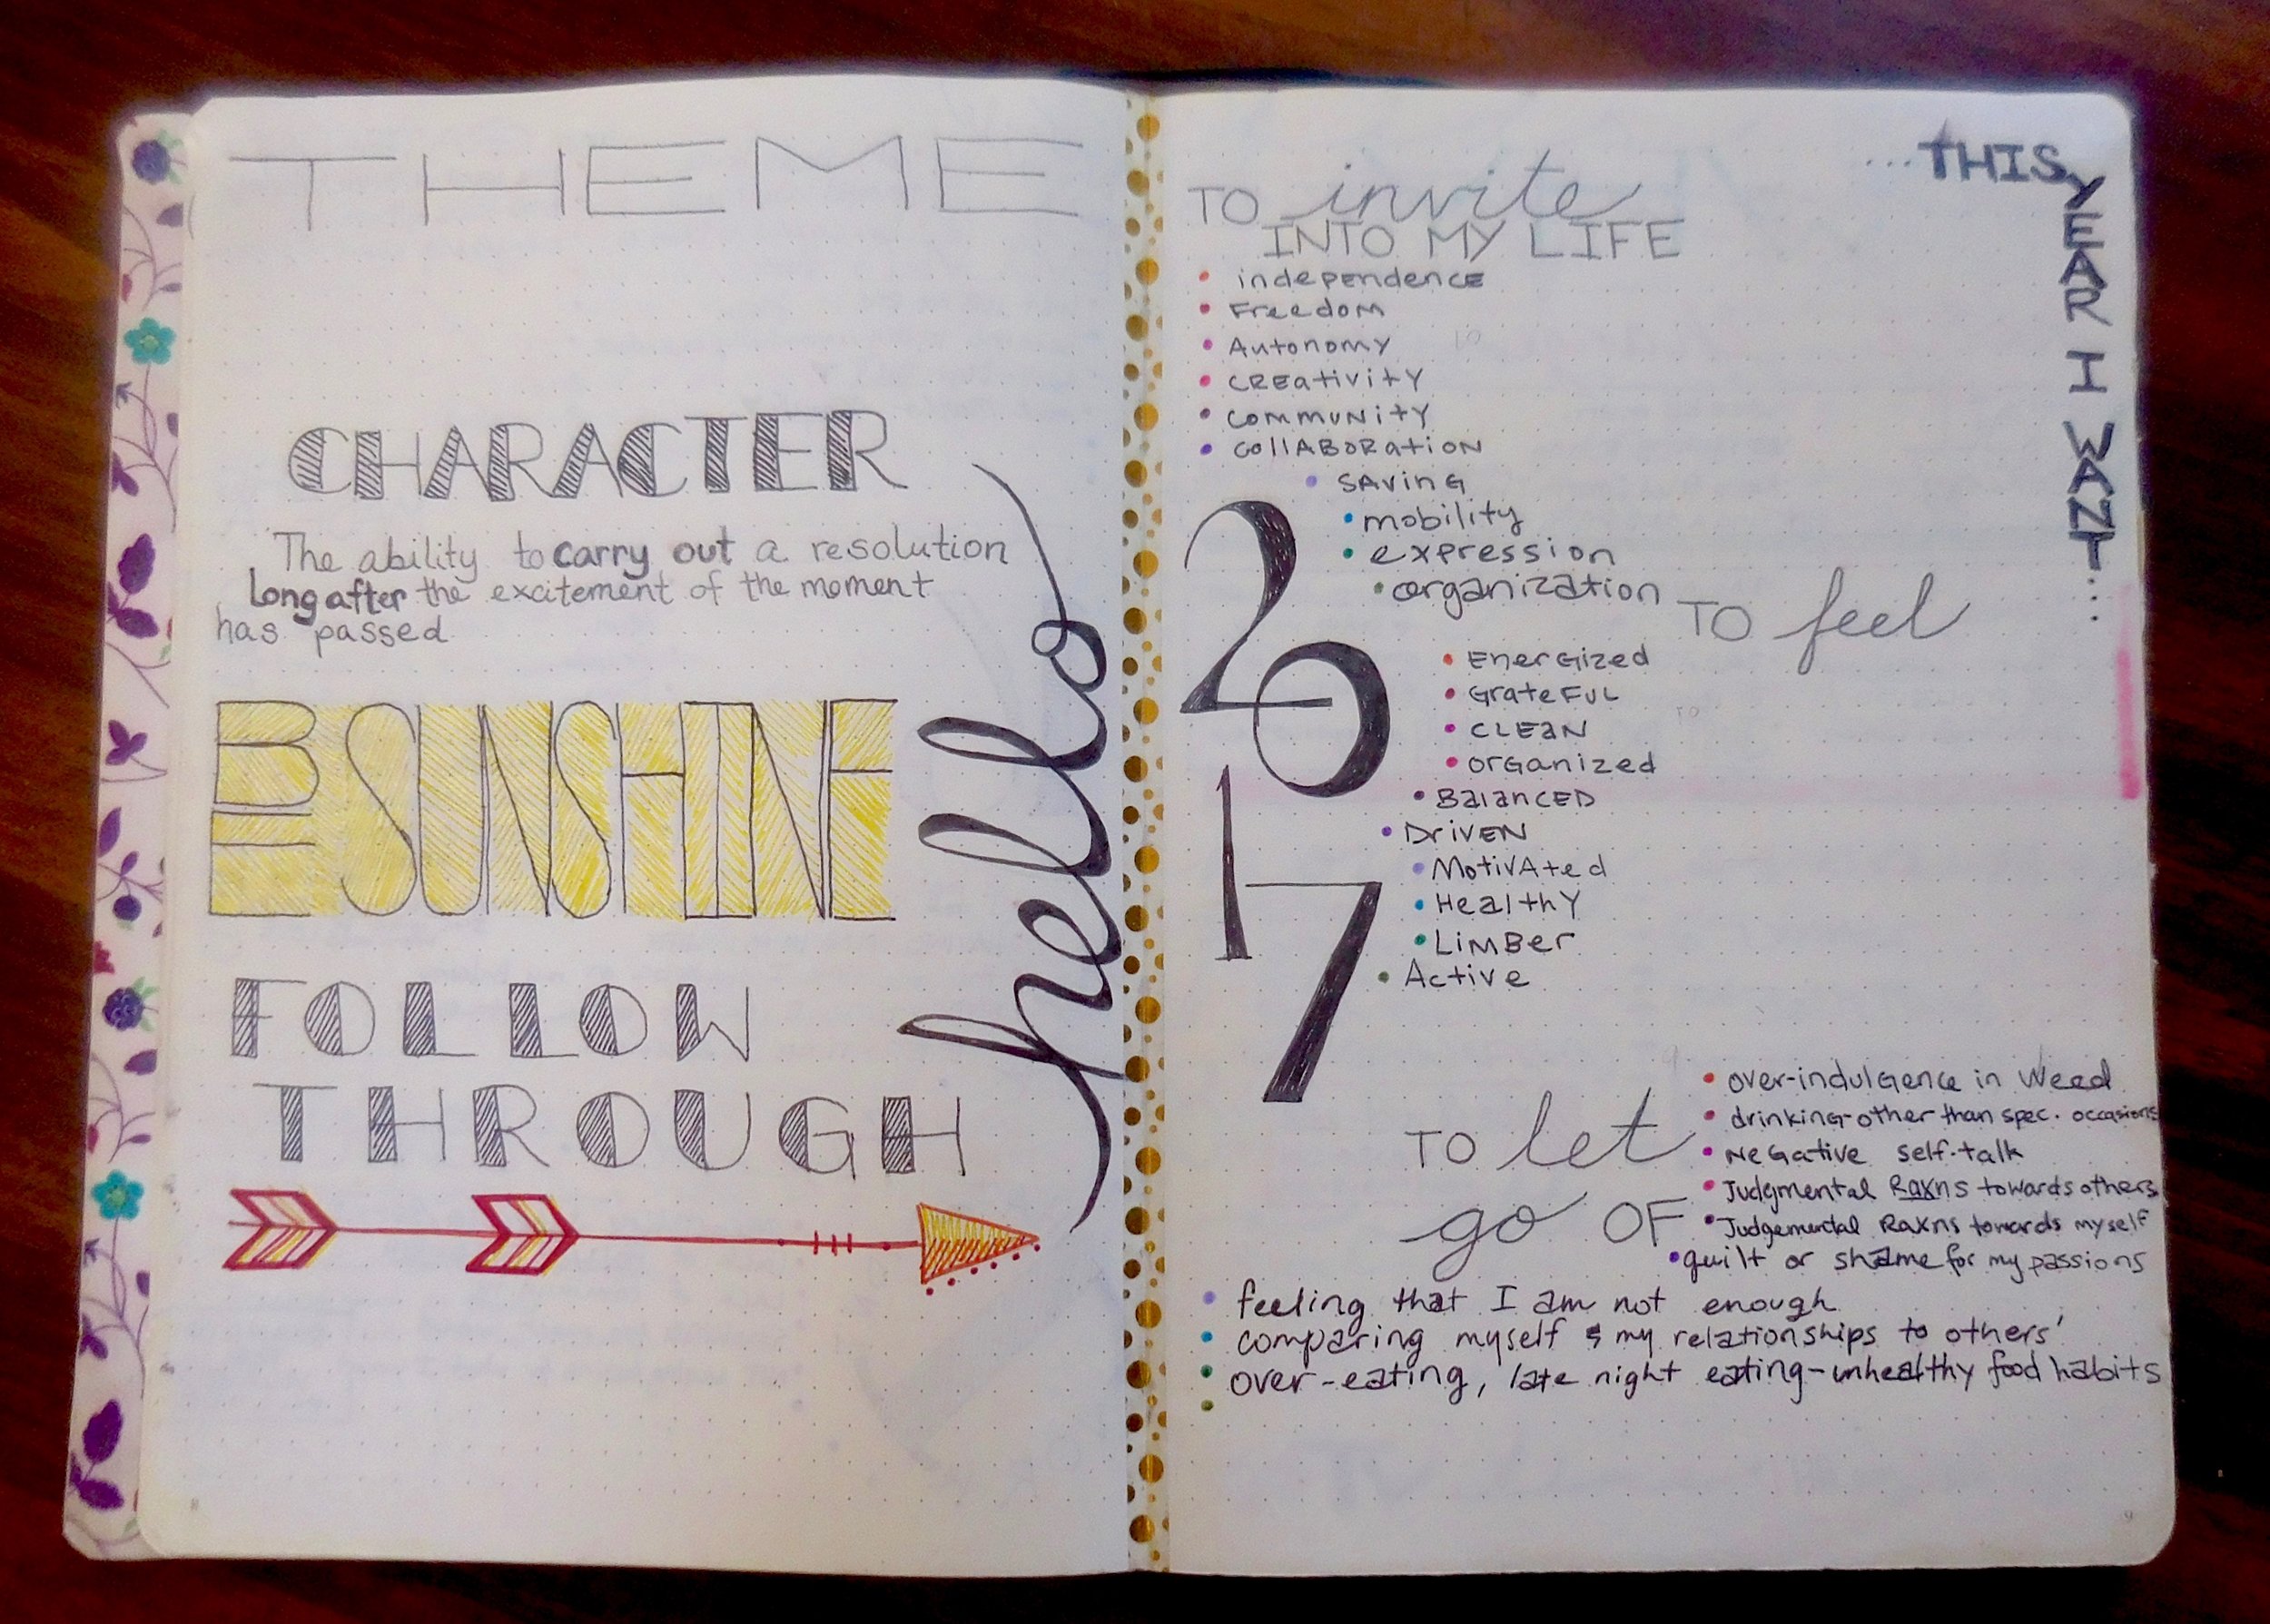 THEME
CHARACTER
The ability to carry out a resolution
long after the excitement of the moment
has passed
BE SUNSHINE
FOLLOW
THROUGH
hello
8
...THIS YEAR I WANT...
TO invite
INTO MY LIFE
• independence
• Freedom
• Autonomy
• CREativity
• COMMUNity
• COllABORatiON
• SAvinG
• mobility
• expression
• organization
2017
TO feel
• EnerGized
• GrateFUL
• CLEaN
• orGanized
• BalanCED
• DrivEN
• MotivAted
• HealthY
• LiMBer
• Active
TO let
go OF
• over-indulGence in weed
• drinking-other than spec. occasions
• NeGative self-talk
• Judgmental Raxns towards others
• Judgemental Raxns towards myself
• guilt or shame for my passions
• feeling that I am not enough
• comparing myself & my relationships to others'
• over-eating, late night eating-unhealthy food habits
•
9